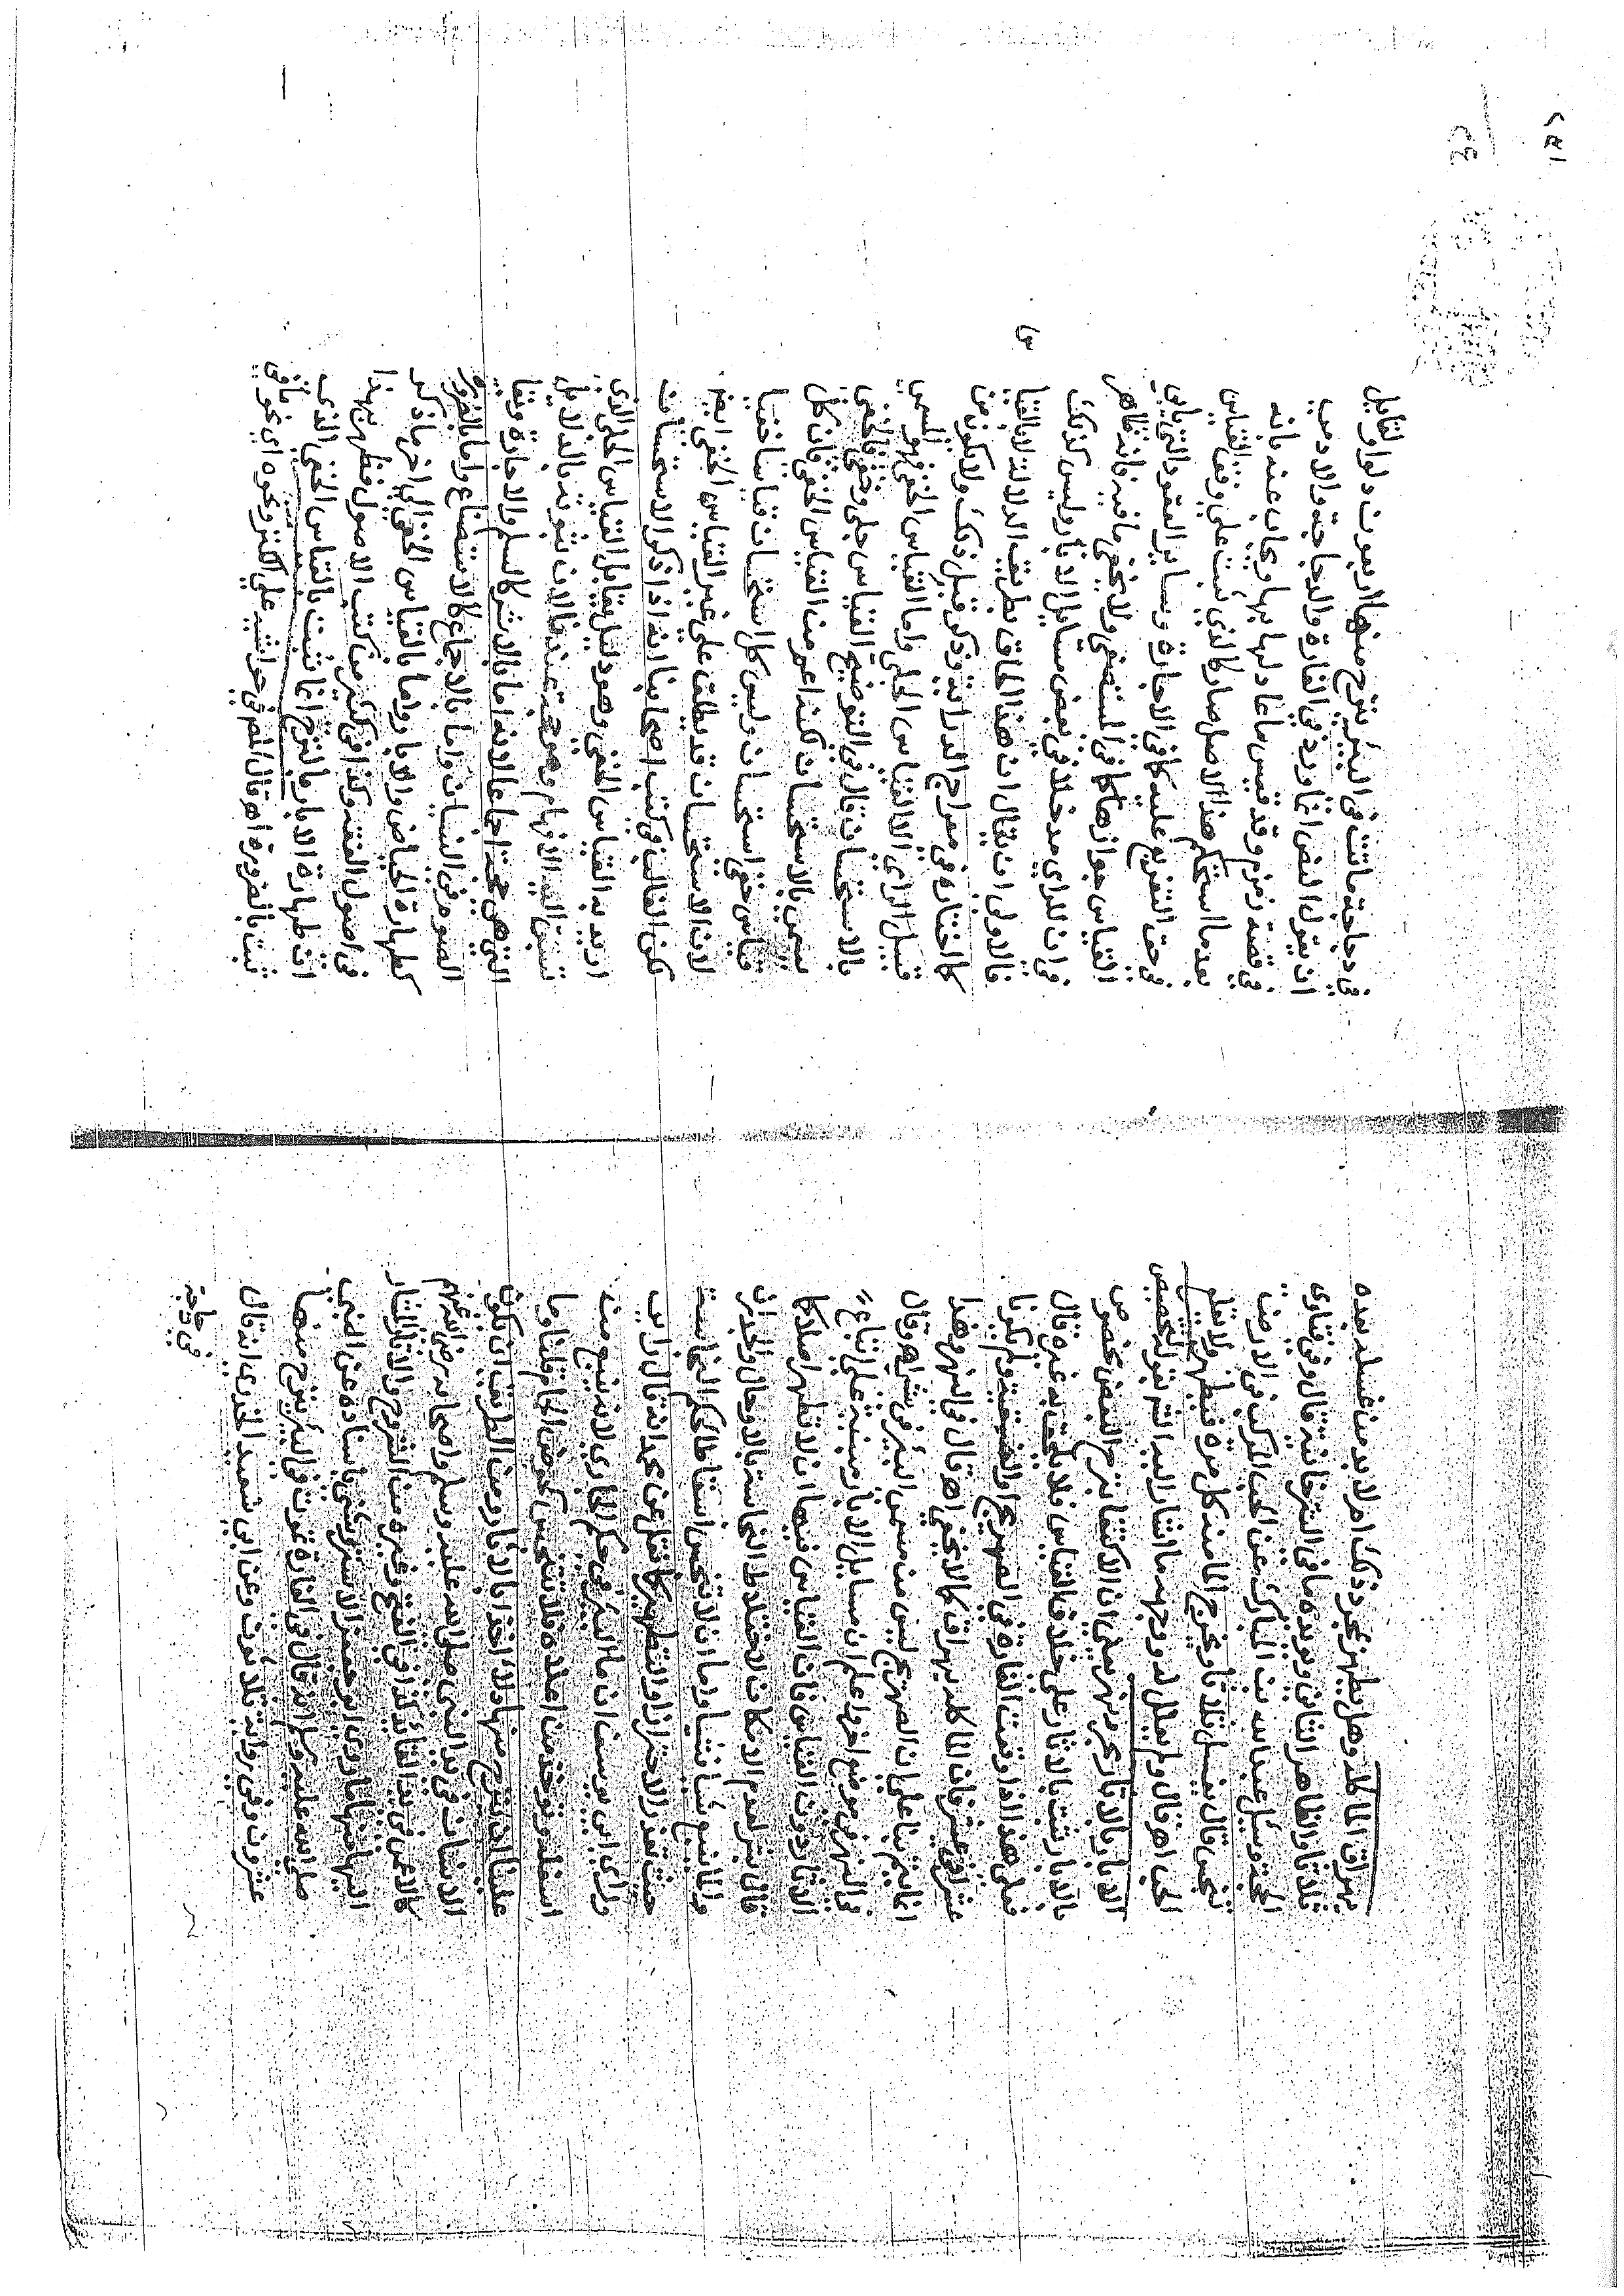 يهراق الماء كله وهل يطهر بمجرد ذلك ام لا بد من غسله بعده
ثلاثا والظاهر الثاني ويؤيده ما في التترخانية قال وفي فتاوى
الحجة وسئل عبد الله بن المبارك عن الحب المركب في الارض
تنجس قال يغسل ثلاثا ويخرج الماء منه كل مرة فيطهر ولا يقلع
الحب اه قال ولم يعلل له ووجهه ما اشار اليه الش بقوله لتخصيص
الابار بالاثار بحر ونهر يعني ان الاكتفا بنزح البعض مخصوص
بالابار ثبت بالاثار على خلاف القياس فلا يلحق به غيره قال
فعلى هذا اذا وقعت الفارة في الصهريج او الفسقية ولم يكونا
عشرا في عشر فان الماء كله يهراق كما لا يخفى اه قال في النهر وهذا
انما يتم بنا على ان الصهريج ليس من مسمى البئر في شئ اه وقال
في النهر في موضع اخر واعلم ان مسايل الابار مبنية على اتباع
الاثار دون القياس فان القياس فيها اما ان لا تطهر اصلا كما
قال بشر لعدم الامكان لاختلاط النجاسة بالاوحال والجدران
والماء ينبع شيئا فشيئا واما ان لا تتنجس اسقاطا لحكم النجاسة
حيث تعذر الاحتراز او التطهير كما نقل عن محمد انه قال رايي
وراي ابي يوسف ان ماء البئر في حكم الجاري لانه ينبع من
اسفله ويؤخذ من اعلاه فلا يتنجس كحوض الحمام قلنا وما
علينا ان ننزح منها دلاء اخذا بالاثار ومن الطريق ان يكون
الانسان في يد النبي صلى الله عليه وسلم واصحابه رضي الله عنهم
كالاعمى في يد القائد كذا في الفتح وغيره من الشروح والاثار المشار
اليها فيها ما روى ابو جعفر الاستروشني باسناده عن النبي
صلى الله عليه وسلم انه قال في الفارة تموت في البئر ينزح منها
عشرون وفي رواية ثلاثون وعن ابي سعيد الخدري انه قال
في دجاجة
في دجاجة ماتت في البئر ينزح منها اربعون دلوا ولقايل
ان يقول النص انما ورد في الفارة والدجاجة والادمي
في قصة زمزم وقد قيس ما عادلها بها ويجاب عنه بانه
بعد ما استحكم هذا الاصل صار كالذي ثبت على وفق القياس
في حق التفريع عليه كما في الاجارة وساير العقود التي يابى
القياس جوازها كما في المستصفى ولا يخفى ما فيه فانه ظاهر
في ان للراي مدخلا في بعض مسايل الابار وليس كذلك
فالاولى ان يقال ان هذا الحاق بطريق الدلالة لا بالقياس
كما اختاره في معراج الدراية وذكر قبل ذلك ولا يكون من
قبيل الراي الا القياس الجلي واما القياس الخفي فهو المسمى
بالاستحسان قال في التوضيح القياس جلي وخفي فالخفي
يسمى بالاستحسان لكنه اعم من القياس الخفي فان كل
قياس خفي استحسان وليس كل استحسان قياسا خفيا
لان الاستحسان قد يطلق على غير القياس الخفي ايضا
لكن الغالب في كتب اصحابنا انه اذا ذكر الاستحسان
اريد به القياس الخفي وهو دليل يقابل القياس الجلي الذي
يسبق اليه الافهام وهو حجة عندنا لان ثبوته بالدلايل
التي هي حجة اجماعا لانه اما بالاثر كالسلم والاجارة وبقا
الصوم في النسيان واما بالاجماع كالاستصناع واما بالضرورة
كطهارة الحياض والابار واما بالقياس الخفي الى اخر ما ذكر
في اصول الفقه وكذا في كثير من كتب الاصول فظهر بهذا
ان طهارة الابار بالنزح انما ثبتت بالقياس الخفي الذي
ثبت بالضرورة اه قال المص في حواشيه على الكنز ونحوه اي نحو ما في